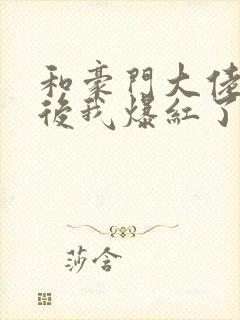 和豪門大佬
後我爆紅了
莎含